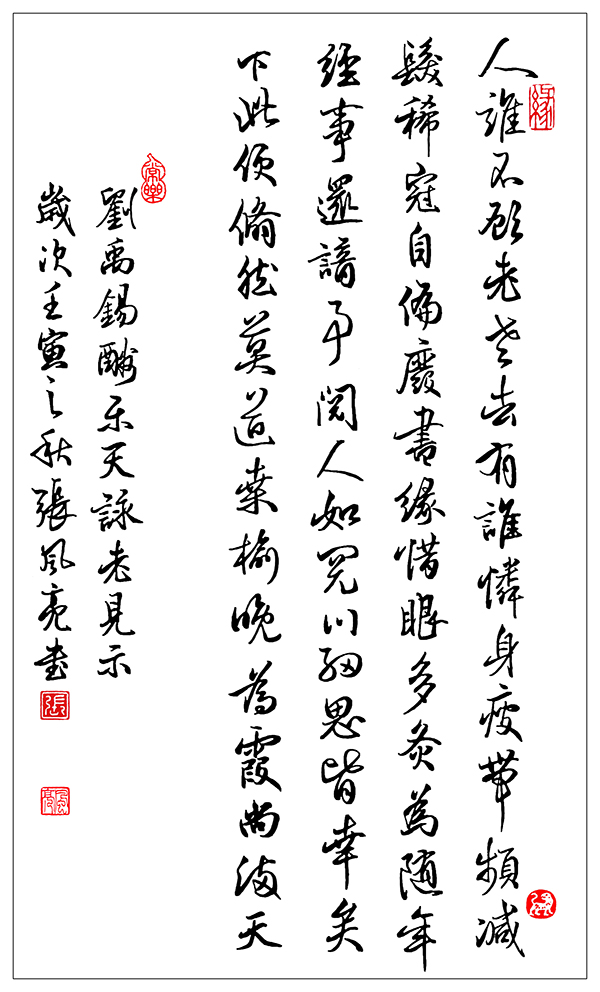 緣
人誰不顧老老去有誰憐身疲帶頻減
髮稀冠自偏廢書緣惜眼多灸為隨年
經事還諳事閱人如閱川細思皆幸矣
下此便翛然莫道桑榆晚為霞尚滿天
常樂
劉禹錫酬乐天詠老見示
歲次壬寅之秋張風亮書
張
風亮